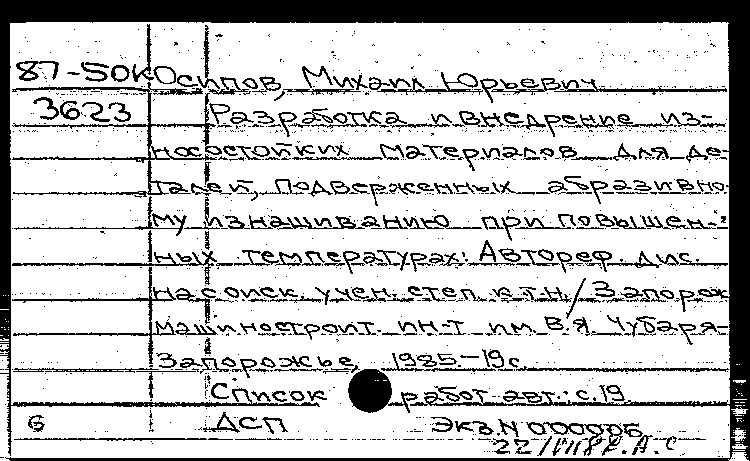 87-50К Осипов, Михаил Юрьевич
3623 Разработка и внедрение из-
носостойких материалов для де-
талей, подверженных абразивно-
му изнашиванию при повышен-
ных температурах: Автореф. дис.
на соиск. учен. степ. к.т.н. / Запорож.
машиностроит. ин-т им. В.Я. Чубаря.-
Запорожье, 1985.-19с.
Список работ авт.: с.19.
6 ДСП Экз.N 000006
22/